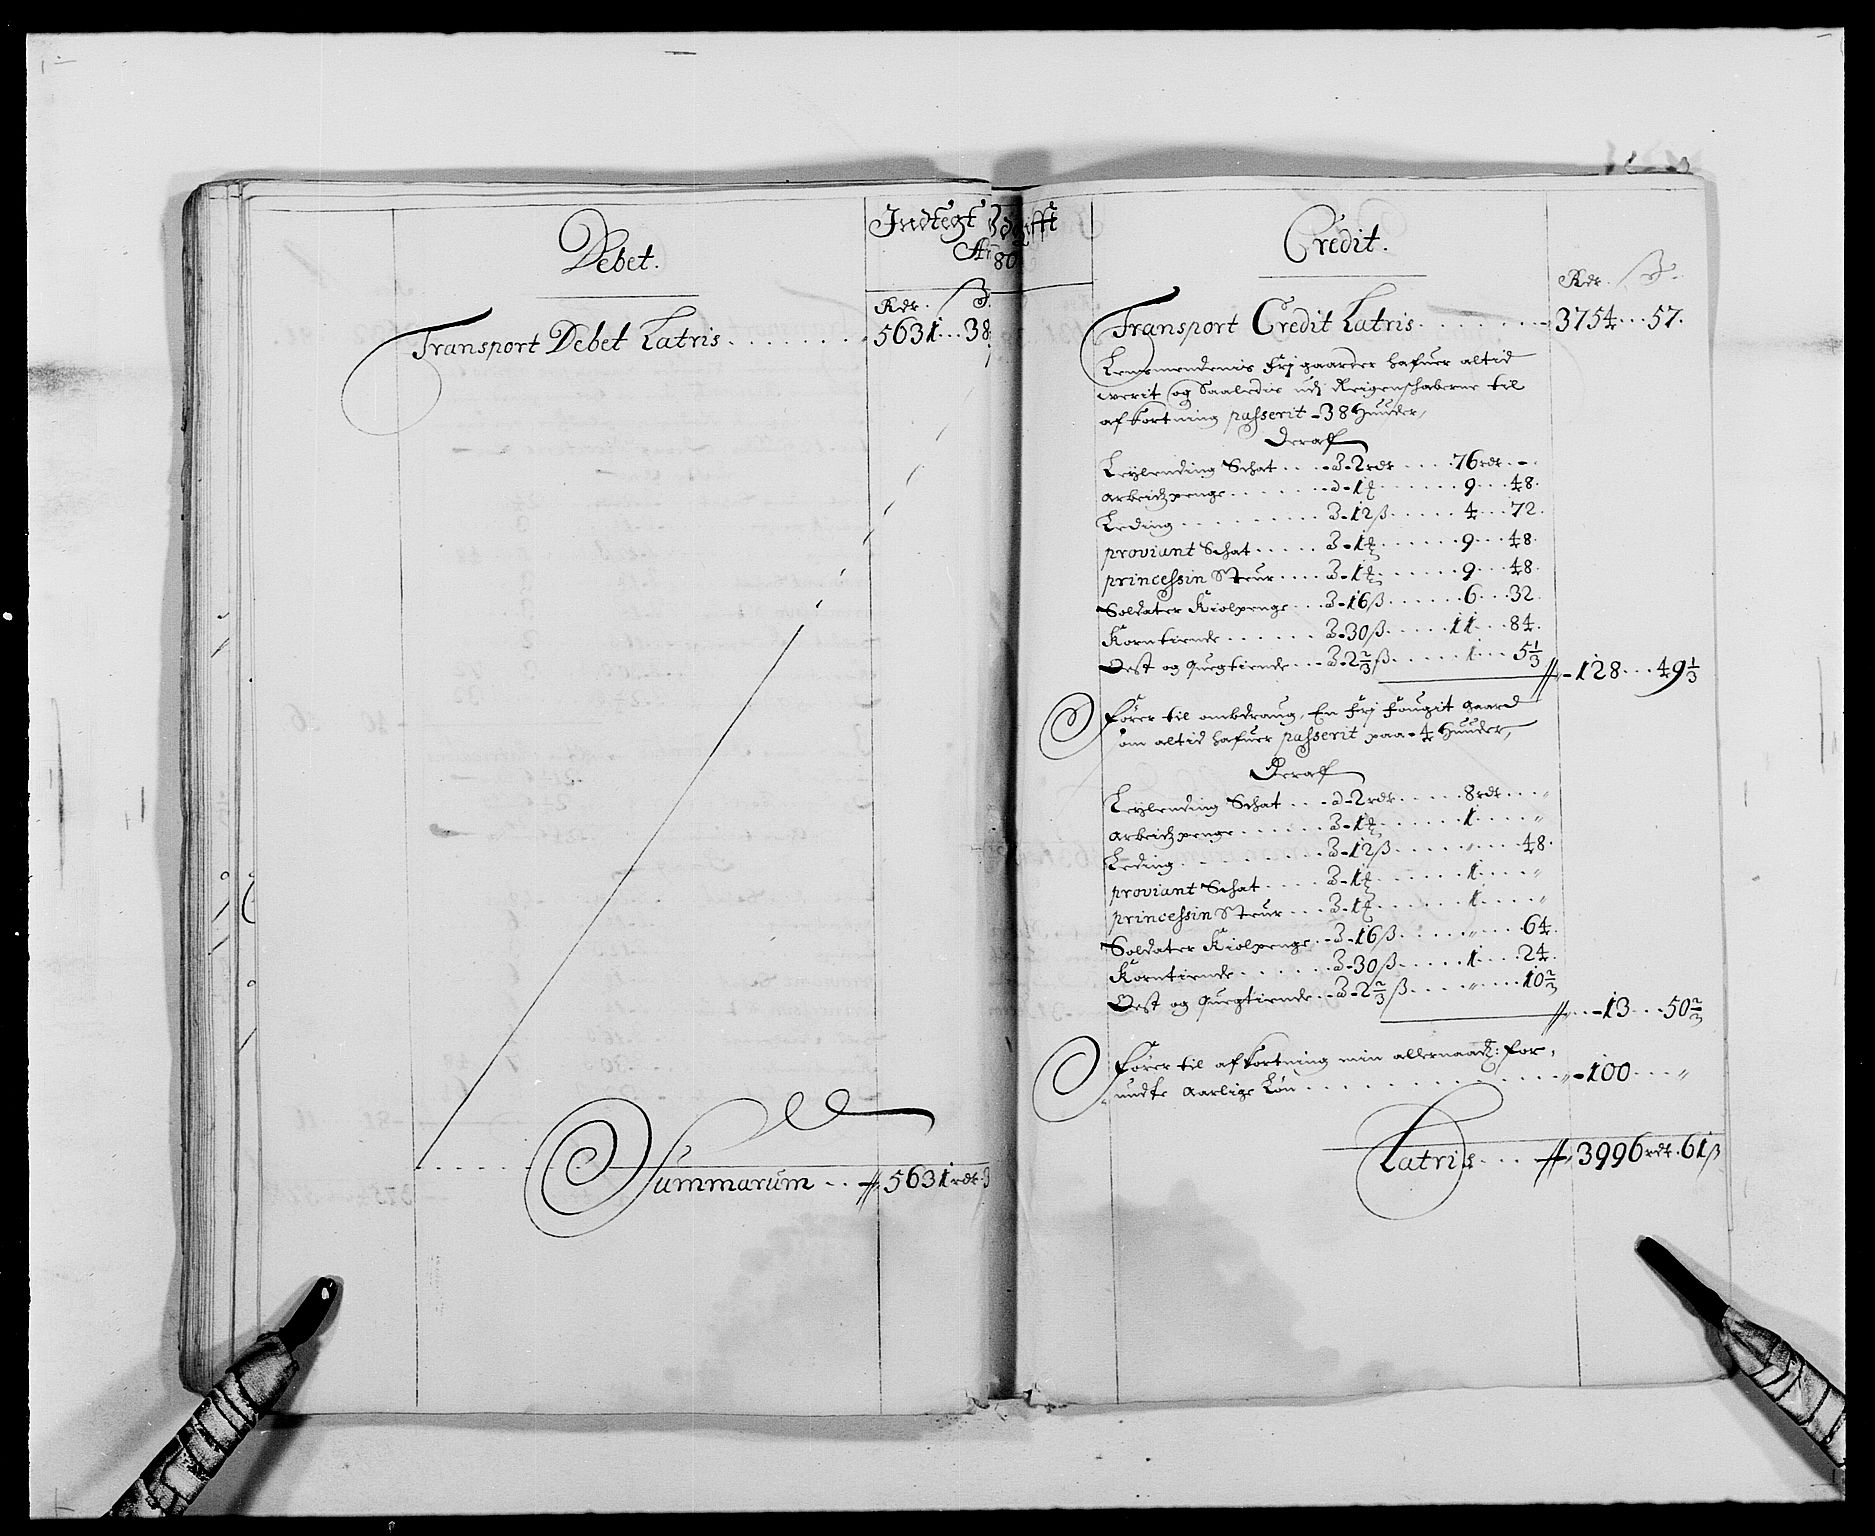 Debet.
Indtegt Udgifft
Ao 80
Rdr. ß.
Transport Debet Latris . . . . . . . . 5631 . . . 38
Summarum . . . 5631 rdr.
Credit.
Rdr. ß.
Transport Credit Latris . . . . . . . 3754 . . . 57.
Lensmendenis Frj gaarder hafuer altid
werit og Saaledis udj Reigenschaberne til
afkortning passerit - 38 Huuder,
Deraf
Leylending Schat . . . - 2 rdr . . . . 76 rdr . . -
Arbeidzpenge . . . . . . . - 1 ꝑ . . . . . . . 9 . . . 48.
Leding . . . . . . . . . - 12 ß . . . . . 4 . . . 72.
proviant Schat . . . . . - 1 ꝑ . . . . . . 9 . . . 48.
princessin Steur . . . . - 1 ꝑ . . . . . . 9 . . . 48.
Soldater Kiolpenge . . . - 16 ß . . . . . . 6 . . . 32.
Korntiende . . . . . . - 30 ß . . . . . 11 . . . 84.
Oest og quegtiende . . . - 2 2/3 ß . . . . . . 1 . . . 5 1/3
- 128 . . . 49 1/3
Fører til ombdraug, En Frj Fougit gaard
om altid hafuer passerit paa - 4 Huuder,
Deraf
Leylending Schat . . . - 2 rdr . . . . . 8 rdr . . . "
Arbeidzpenge . . . . . . - 1 ꝑ . . . . . . 1 . . . . "
Leding . . . . . . . . . - 12 ß . . . . . " . . . 48.
proviant Schat . . . . - 1 ꝑ . . . . . . 1 . . . . "
princessin Steur . . . - 1 ꝑ . . . . . . 1 . . . . "
Soldater Kiolpenge . . - 16 ß . . . . . " . . . 64.
Korntiende . . . . . . - 30 ß . . . . . 1 . . . 24.
Oest og quegtiende . . - 2 2/3 ß . . . . " . . . 10 2/3
- 13 . . . 50 2/3
Fører til afkortning min allernaadt: for-
undte Aarlige Løn . . . . . . . . . . . - 100 . . . "
Latris . . . 3996 rdr. 61 ß